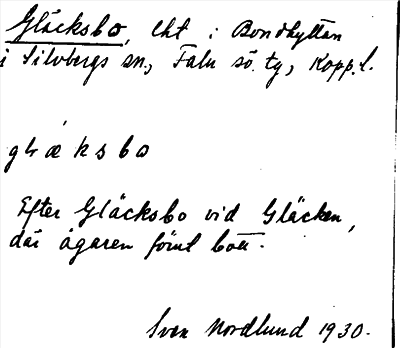 Gläcksbo, lht i Bondhyttan
i Silvbergs sn, Falu sö. tg, Kopp. l.
glæksbo
Efter Gläcksbo vid Gläcken,
där ägaren förut bott.
Sven Nordlund 1930.